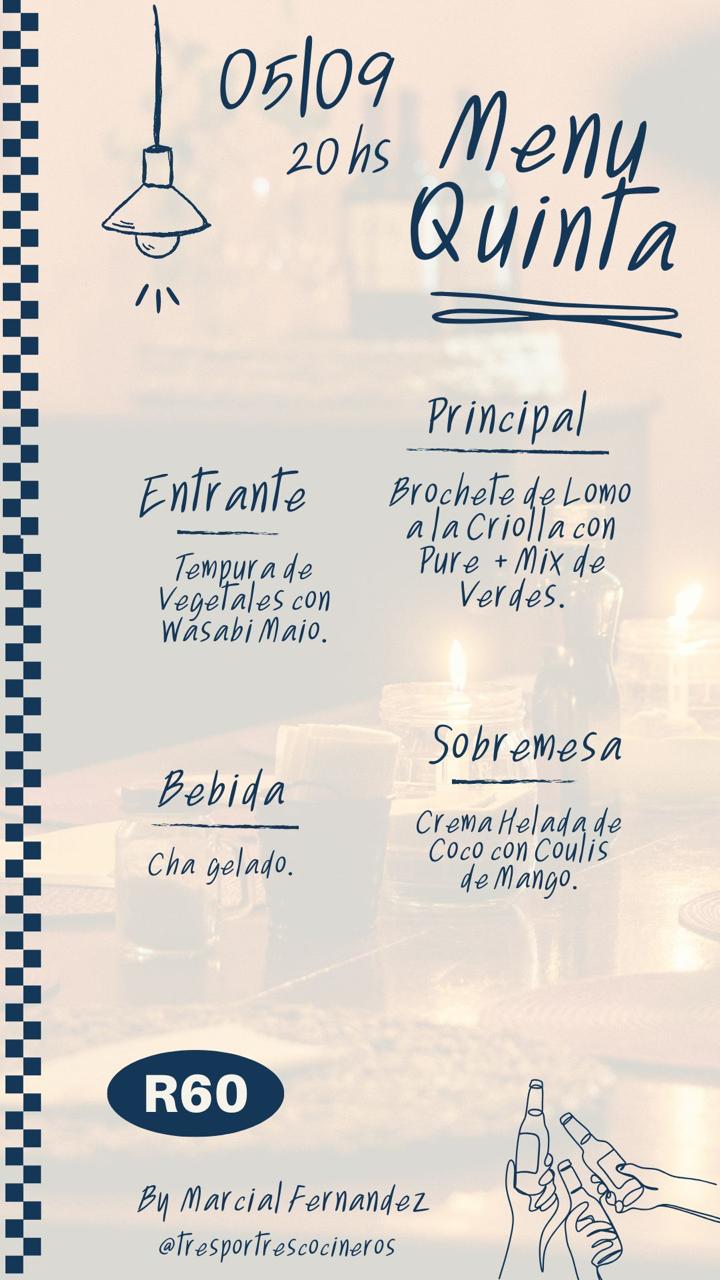 05|09
20 hs
Menu
Quinta
Principal
Brochete de Lomo
a la Criolla con
Pure + Mix de
Verdes.
Entrante
Tempura de
Vegetales con
Wasabi Maio.
Sobremesa
Crema Helada de
Coco con Coulis
de Mango.
Bebida
Cha gelado.
R60
By Marcial Fernandez
@tresportrescocineros